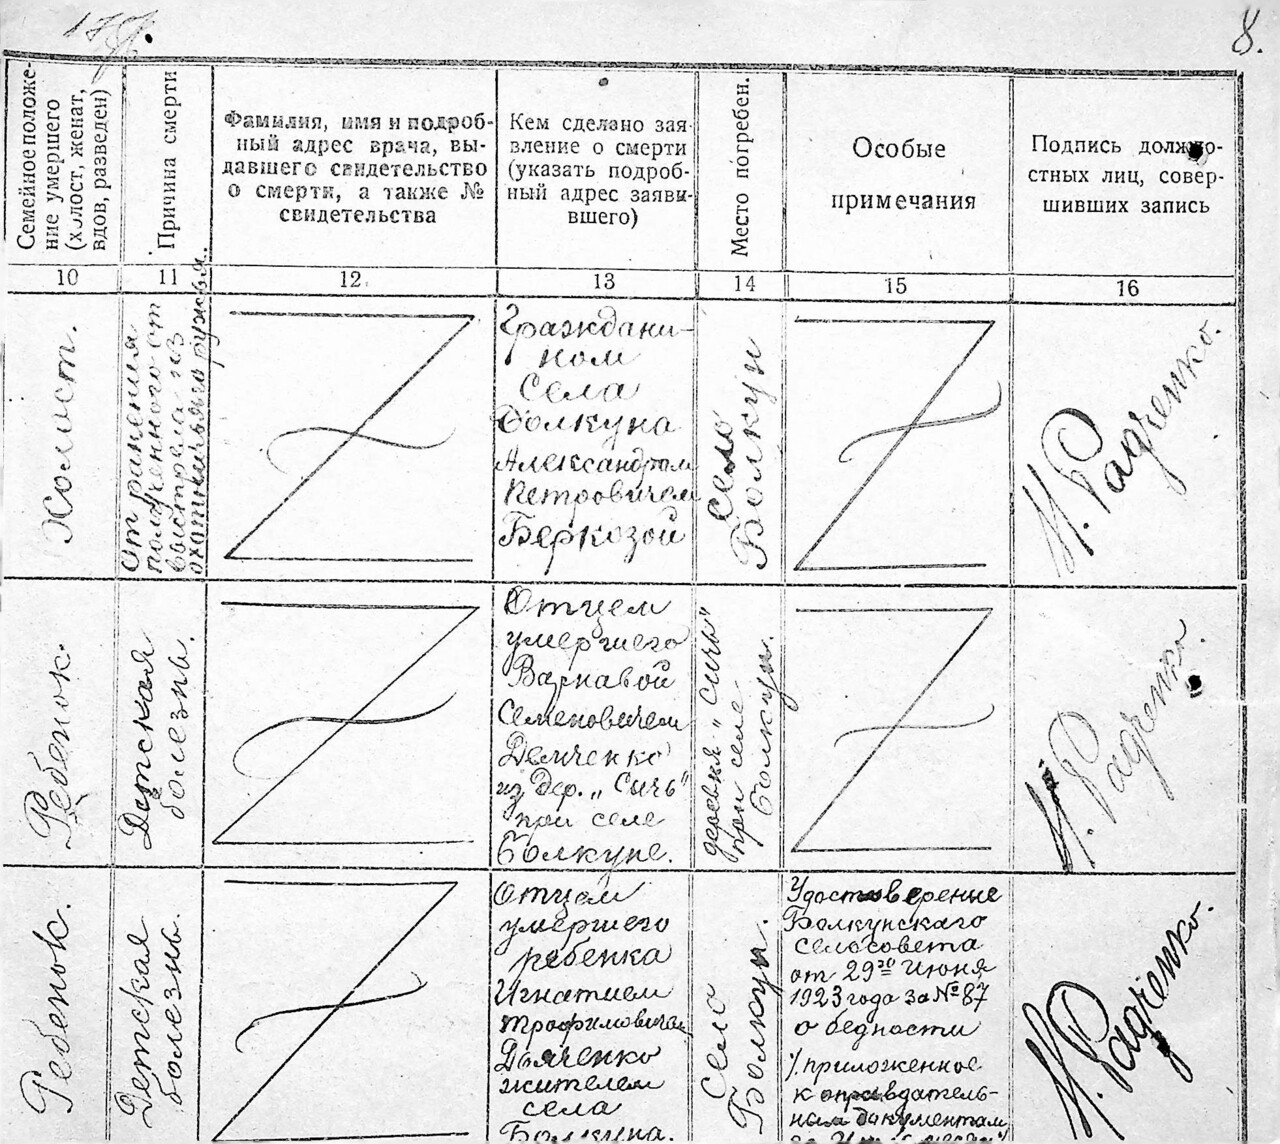 8.
Семейное положе-
ние умершего
(холост, женат,
вдов, разведен)
Причина смерти
Фамилия, имя и подроб-
ный адрес врача, вы-
давшего свидетельство
о смерти, а также №
свидетельства
Кем сделано зая-
вление о смерти
(указать подроб-
ный адрес заяви-
вшего)
Место погребен.
Особые
примечания
Подпись должно-
стных лиц, совер-
шивших запись
10
11
12
13
14
15
16
Холост.
От ранения
полученного от
выстрела из
охотничьяго ружья.
Граждани-
ном
села
Болкуна
Александром
Петровичем
Беркозой
село
Болкун
Ребенок.
Детская
болезнь.
Отцем
умершего
Варнавой
Семеновичем
Демченко
из дер. „Сичь"
при селе
Болкуне.
деревня „Сичь"
при селе
Болкун.
Ребенок.
Детская
болезнь.
Отцем
умершего
ребенка
Игнатием
Трофимовичем
Дяченко
жителем
села
Болкуна.
Село
Болкун.
Удостоверение
Болкунскаго
селосовета
от 29го Июня
1923 года за № 87
о бедности
приложенное
к оправдатель-
ным документам